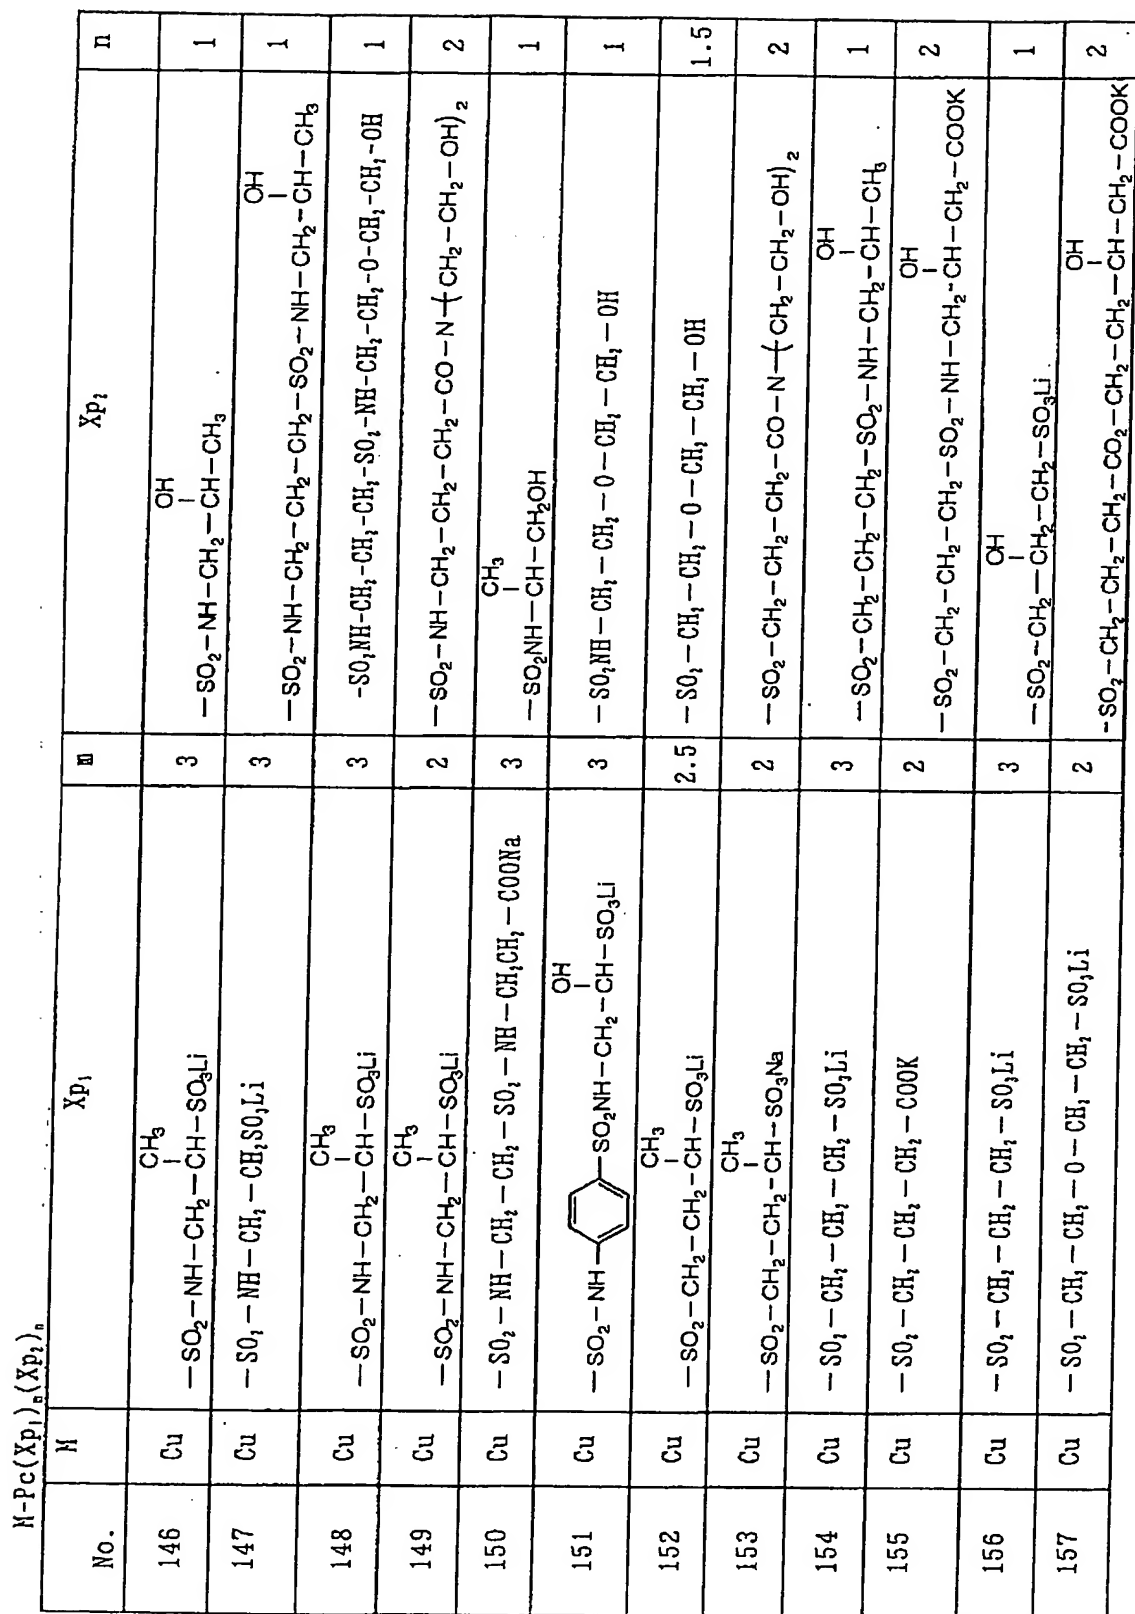 M-Pc(Xp₁)ₘ(Xp₂)ₙ
No. M Xp₁ m Xp₂ n
146 Cu —SO₂—NH—CH₂—CH(CH₃)—SO₃Li 3 —SO₂—NH—CH₂—CH(OH)—CH₃ 1
147 Cu —SO₂—NH—CH₂—CH₂SO₃Li 3 —SO₂—NH—CH₂—CH₂—CH₂—SO₂—NH—CH₂—CH(OH)—CH₃ 1
148 Cu —SO₂—NH—CH₂—CH(CH₃)—SO₃Li 3 -SO₂NH-CH₂-CH₂-CH₂-SO₂-NH-CH₂-CH₂-O-CH₂-CH₂-OH 1
149 Cu —SO₂—NH—CH₂—CH(CH₃)—SO₃Li 2 —SO₂—NH—CH₂—CH₂—CH₂—CO—N—(CH₂—CH₂—OH)₂ 2
150 Cu —SO₂—NH—CH₂—CH₂—SO₂—NH—CH₂CH₂—COONa 3 —SO₂NH—CH(CH₃)—CH₂OH 1
151 Cu —SO₂—NH— —SO₂NH—CH₂—CH(OH)—SO₃Li 3 —SO₂NH—CH₂—CH₂—CH₂—O—CH₂—CH₂—OH 1
152 Cu —SO₂—CH₂—CH₂—CH(CH₃)—SO₃Li 2.5 —SO₂—CH₂—CH₂—O—CH₂—CH₂—OH 1.5
153 Cu —SO₂—CH₂—CH₂—CH(CH₃)—SO₃Na 2 —SO₂—CH₂—CH₂—CH₂—CO—N—(CH₂—CH₂—OH)₂ 2
154 Cu —SO₂—CH₂—CH₂—CH₂—SO₃Li 3 —SO₂—CH₂—CH₂—CH₂—SO₂—NH—CH₂—CH(OH)—CH₃ 1
155 Cu —SO₂—CH₂—CH₂—CH₂—COOK 2 —SO₂—CH₂—CH₂—CH₂—SO₂—NH—CH₂—CH(OH)—CH₂—COOK 2
156 Cu —SO₂—CH₂—CH₂—CH₂—SO₃Li 3 —SO₂—CH₂—CH(OH)—CH₂—SO₃Li 1
157 Cu —SO₂—CH₂—CH₂—O—CH₂—CH₂—SO₃Li 2 -SO₂—CH₂—CH₂—CH₂—CO₂—CH₂—CH₂—CH(OH)—CH₂—COOK 2